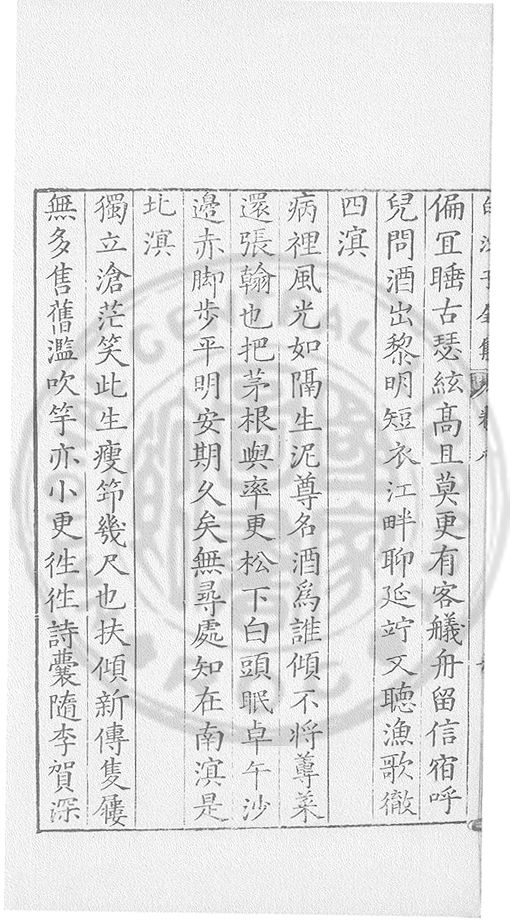 偏宜睡古瑟絃高且莫更有客艤舟留信宿呼
兒問酒出黎明短衣江畔聊延竚又聽漁歌徹
四濵
病裡風光如隔生泥尊名酒為誰傾不將蓴菜
還張翰也把茅根與率更松下白頭眠卓午沙
邊赤脚步平明安期久矣無尋處知在南濵是
北濵
獨立滄茫笑此生瘦筇幾尺也扶傾新傳隻屨
無多售舊濫吹竽亦小更徃徃詩囊隨李賀深